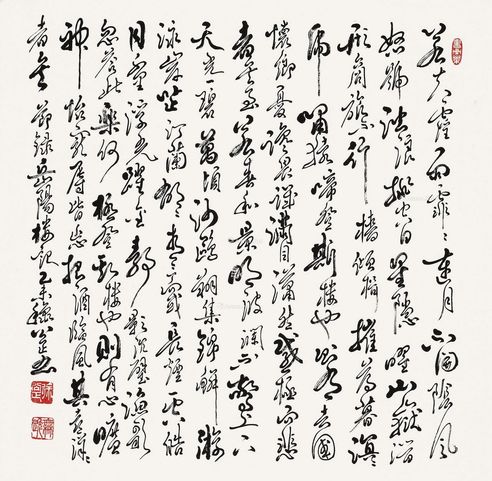 若夫霪雨霏霏連月不開陰風
怒號濁浪排空日星隱曜山嶽潛
形商旅不行檣傾楫摧薄暮溟
虎嘯猿啼登斯樓也則有去國
懷鄉憂讒畏譏滿目蕭然感極而悲
者矣至若春和景明波瀾不驚上下
天光一碧萬頃沙鷗翔集錦鱗游
泳岸芷汀蘭郁郁青青而或長煙一空皓
月千里浮光躍金靜影沉璧漁歌
互答此樂何極登斯樓也則有心曠
神怡寵辱皆忘把酒臨風其喜洋洋
者矣 節錄岳陽樓記乙未